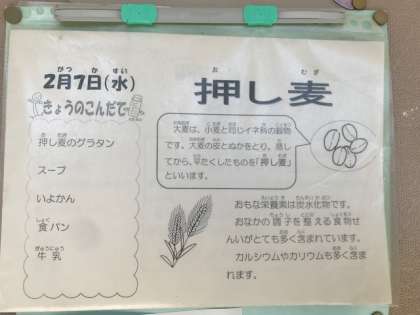 2月7日(水)
きょうのこんだて
押し麦のグラタン
スープ
いよかん
食パン
牛乳
押し麦
大麦は、小麦と同じイネ科の穀物
です。大麦の皮とぬかをとり、蒸し
てから、平たくしたものを「押し麦」
といいます。
おもな栄養素は炭水化物です。
おなかの調子を整える食物せ
んいがとても多く含まれています。
カルシウムやカリウムも多く含ま
れます。